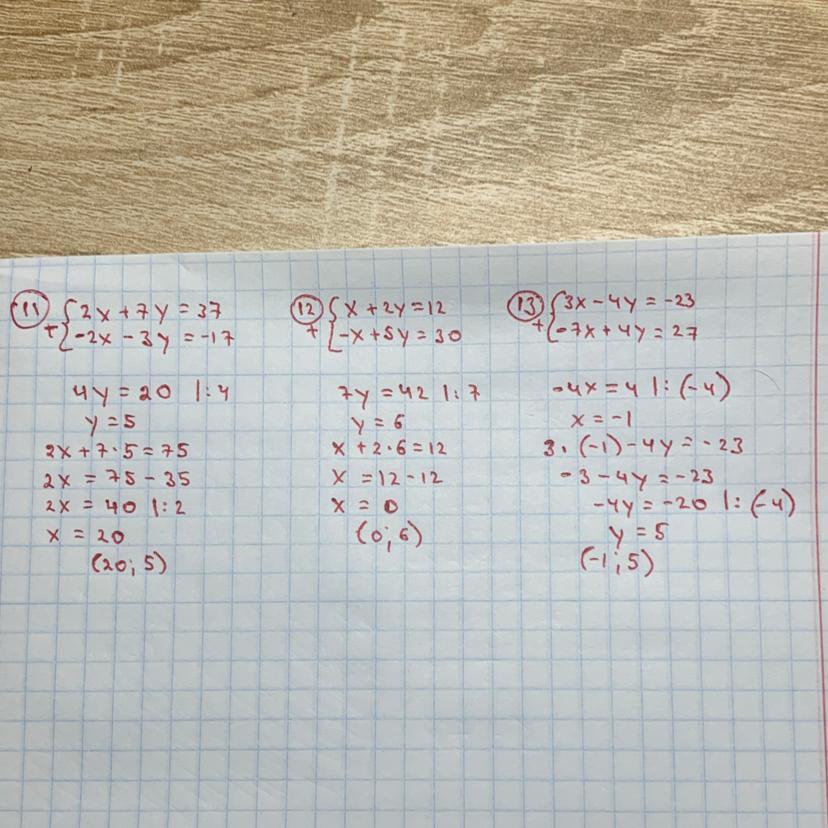 11 2x + 7y = 37
+ -2x - 3y = -17
4y = 20 |:4
y = 5
2x + 7·5 = 75
2x = 75 - 35
2x = 40 |:2
x = 20
(20; 5)
12 x + 2y = 12
+ -x + 5y = 30
7y = 42 |:7
y = 6
x + 2·6 = 12
x = 12 - 12
x = 0
(0; 6)
13 3x - 4y = -23
+ -7x + 4y = 27
-4x = 4 |:(-4)
x = -1
3·(-1) - 4y = -23
-3 - 4y = -23
-4y = -20 |:(-4)
y = 5
(-1; 5)